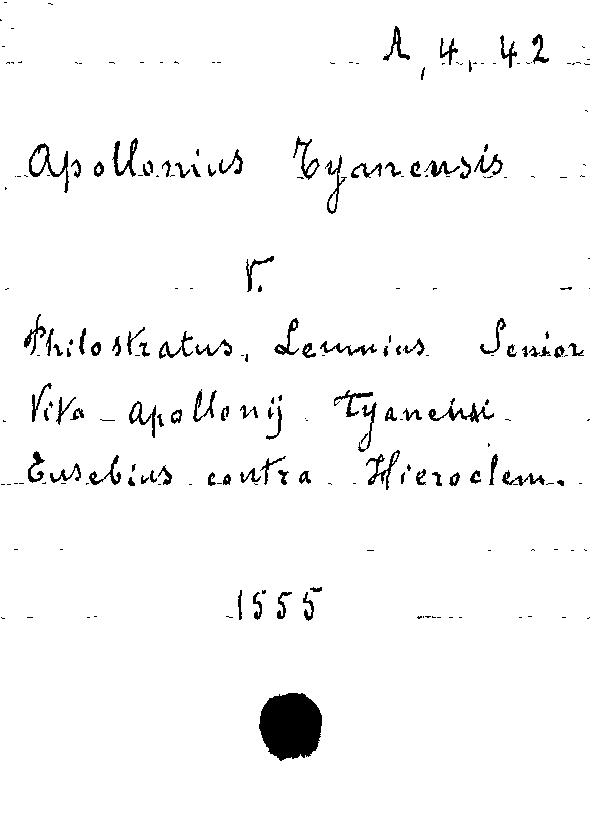 A, 4, 42
Apollonius Tyanensis
V.
Philostratus, Lemnius Senior
Vita Apollonij Tyanensi
Eusebius contra Hieroclem.
1555